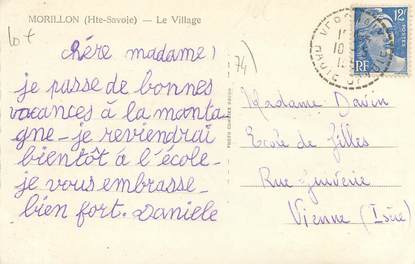 MORILLON (Hte-Savoie) — Le Village
10 +
74)
chère madame !
je passe de bonnes
vacances à la monta
gne - je reviendrai
bientôt à l'école -
je vous embrasse -
bien fort. Danièle
12F
POSTES
RF
Madame Davin
Ecole de filles
Rue Juiverie
Vienne (Isère)